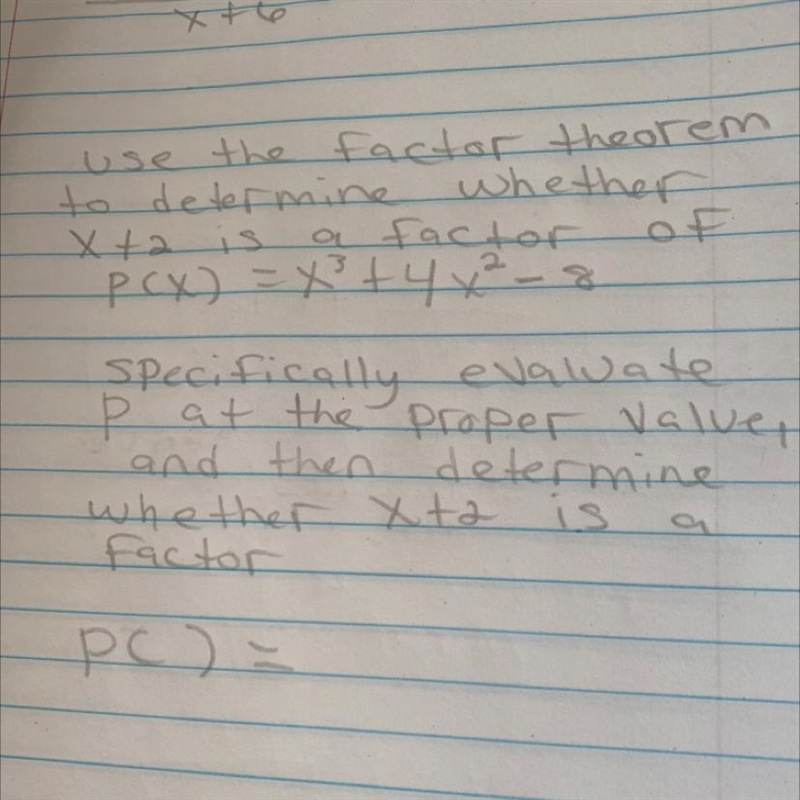 x+6
use the factor theorem
to determine whether
x+2 is a factor of
P(x) = x³ + 4x² - 8
specifically evaluate
P at the proper value,
and then determine
whether x+2 is a
factor
P( ) =